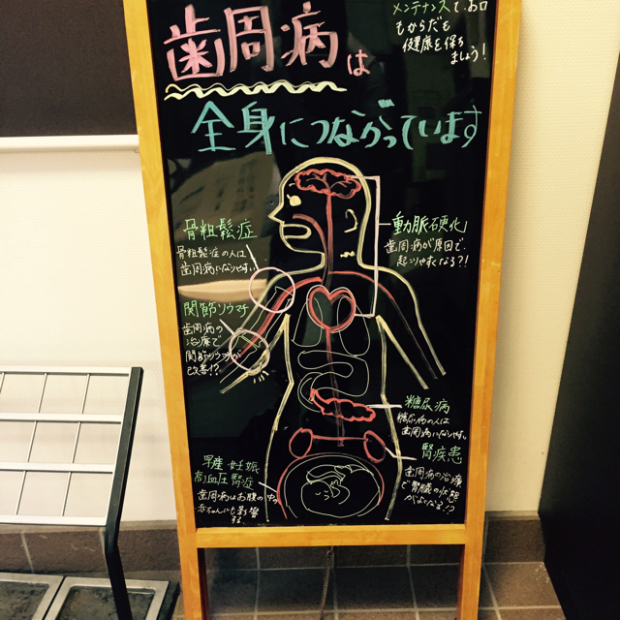 メンテナンスで、お口
もからだも
健康を保ち
ましょう！
歯周病は
全身につながっています
骨粗鬆症
骨粗鬆症の人は
歯周病になりやすい
動脈硬化
歯周病が原因で、
起こりやすくなる?!
関節リウマチ
歯周病の
治療で
関節リウマチが
改善!?
糖尿病
糖尿病の人は
歯周病になりやすい
腎疾患
歯周病の治療
で腎臓の状態
がよくなる!?
早産・妊娠
高血圧腎症
歯周病はお腹の中の
赤ちゃんにも影響
する